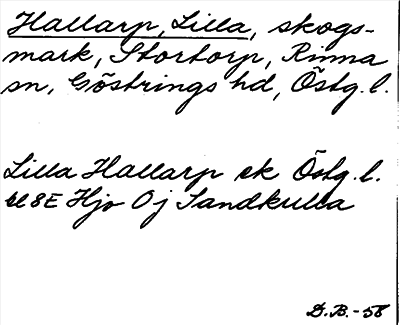 Hallarp, Lilla, skogs-
mark, Stortorp, Rinna
sn, Göstrings hd, Östg. l.
Lilla Hallarp ek Östg. l.
bl 8E Hjo 0j Sandkulla
D.B.-58